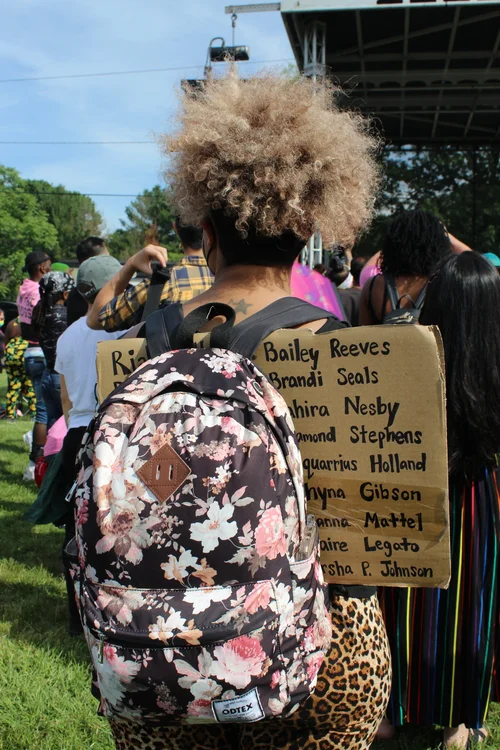 Bailey Reeves
Brandi Seals
hira Nesby
amond Stephens
quarrius Holland
hyna Gibson
anna Mattel
aire Legato
rsha P. Johnson
ODTEX